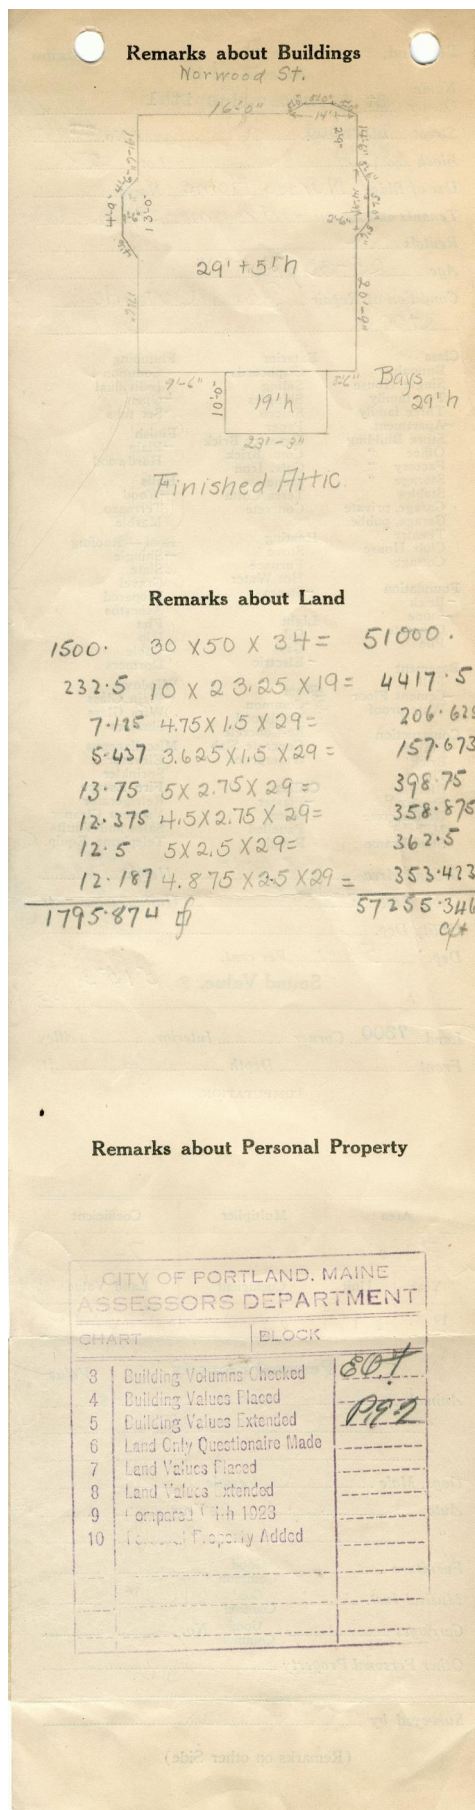 Remarks about Buildings
Norwood St.
16'-0"
14'
14'-6"
4'-0"
13'-0"
29' + 5' h
20'-9"
9'-6"
Bays
10'-0"
19' h
29' h
23'-3"
Finished Attic
Remarks about Land
1500. 30 X 50 X 34 = 51000.
232.5 10 X 23.25 X 19 = 4417.5
7.125 4.75 X 1.5 X 29 = 206.625
5.437 3.625 X 1.5 X 29 = 157.673
13.75 5 X 2.75 X 29 = 398.75
12.375 4.5 X 2.75 X 29 = 358.875
12.5 5 X 2.5 X 29 = 362.5
12.187 4.875 X 2.5 X 29 = 353.423
1795.874 57255.346
Remarks about Personal Property
CITY OF PORTLAND, MAINE
ASSESSORS DEPARTMENT
CHART BLOCK
3 Building Volumns Checked
4 Building Values Placed
5 Building Values Extended
6 Land Only Questionaire Made
7 Land Values Placed
8 Land Values Extended
9 Compared With 1923
10 Personal Property Added